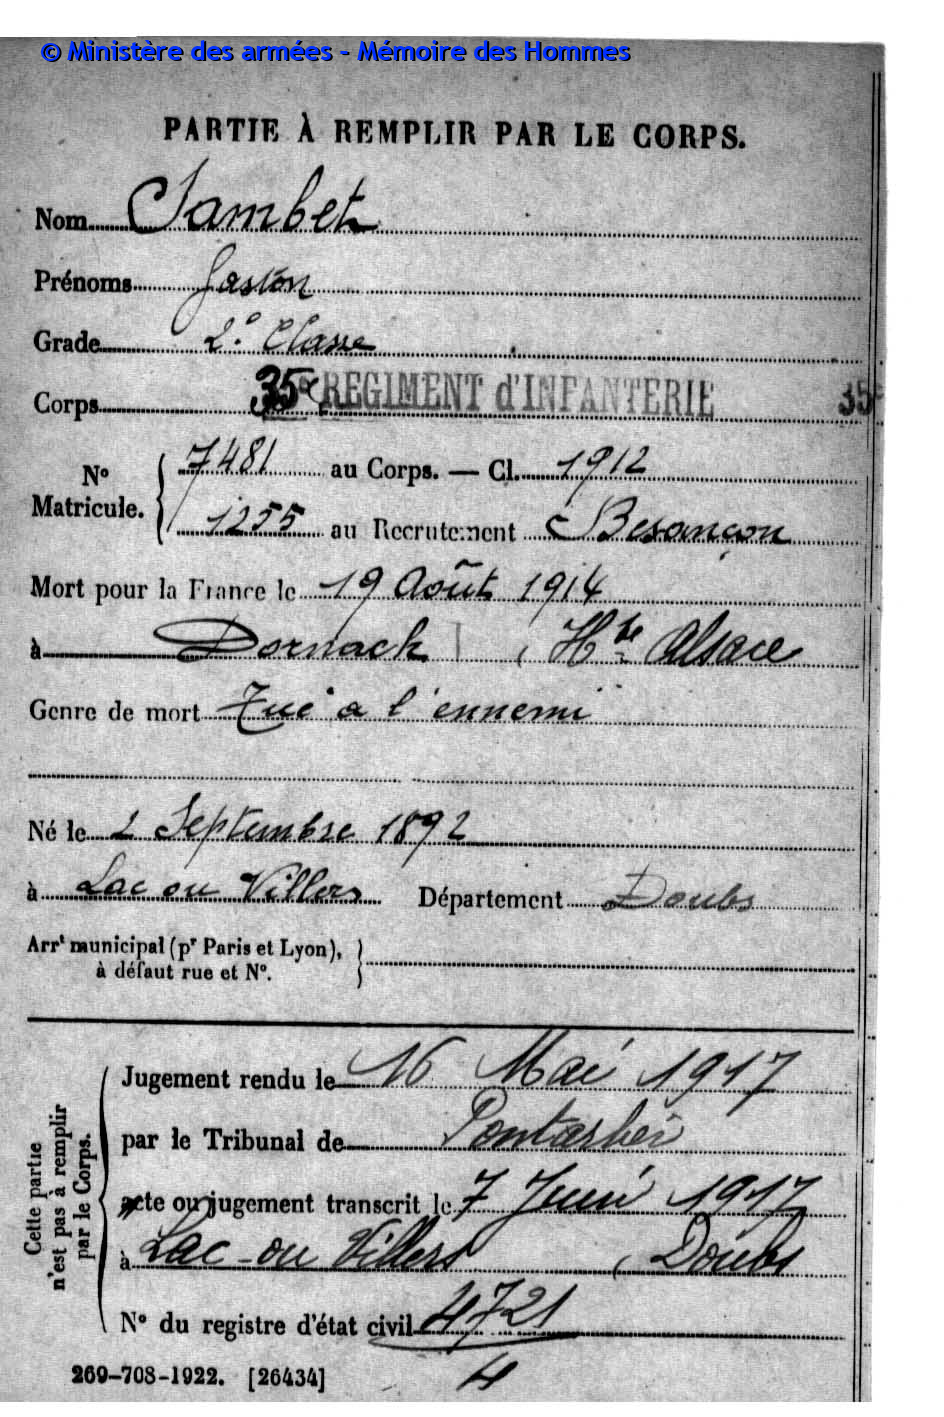 © Ministère des armées - Mémoire des Hommes
PARTIE À REMPLIR PAR LE CORPS.
Nom Jambet
Prénoms Gaston
Grade 2e Classe
Corps 35e REGIMENT d'INFANTERIE 35e
N° Matricule. 7481 au Corps. — Cl. 1912
1255 au Recrutement Besançon
Mort pour la France le 19 Août 1914
à Dornach, Hte Alsace
Genre de mort Tué à l'ennemi
Né le 2 Septembre 1892
à Lac ou Villers Département Doubs
Arrt municipal (pr Paris et Lyon),
à défaut rue et N°.
Cette partie n'est pas à remplir par le Corps.
Jugement rendu le 16 Mai 1917
par le Tribunal de Pontarlier
acte ou jugement transcrit le 7 Juin 1917
à Lac-ou Villers, Doubs
N° du registre d'état civil 4721
4
269-708-1922. [26434]